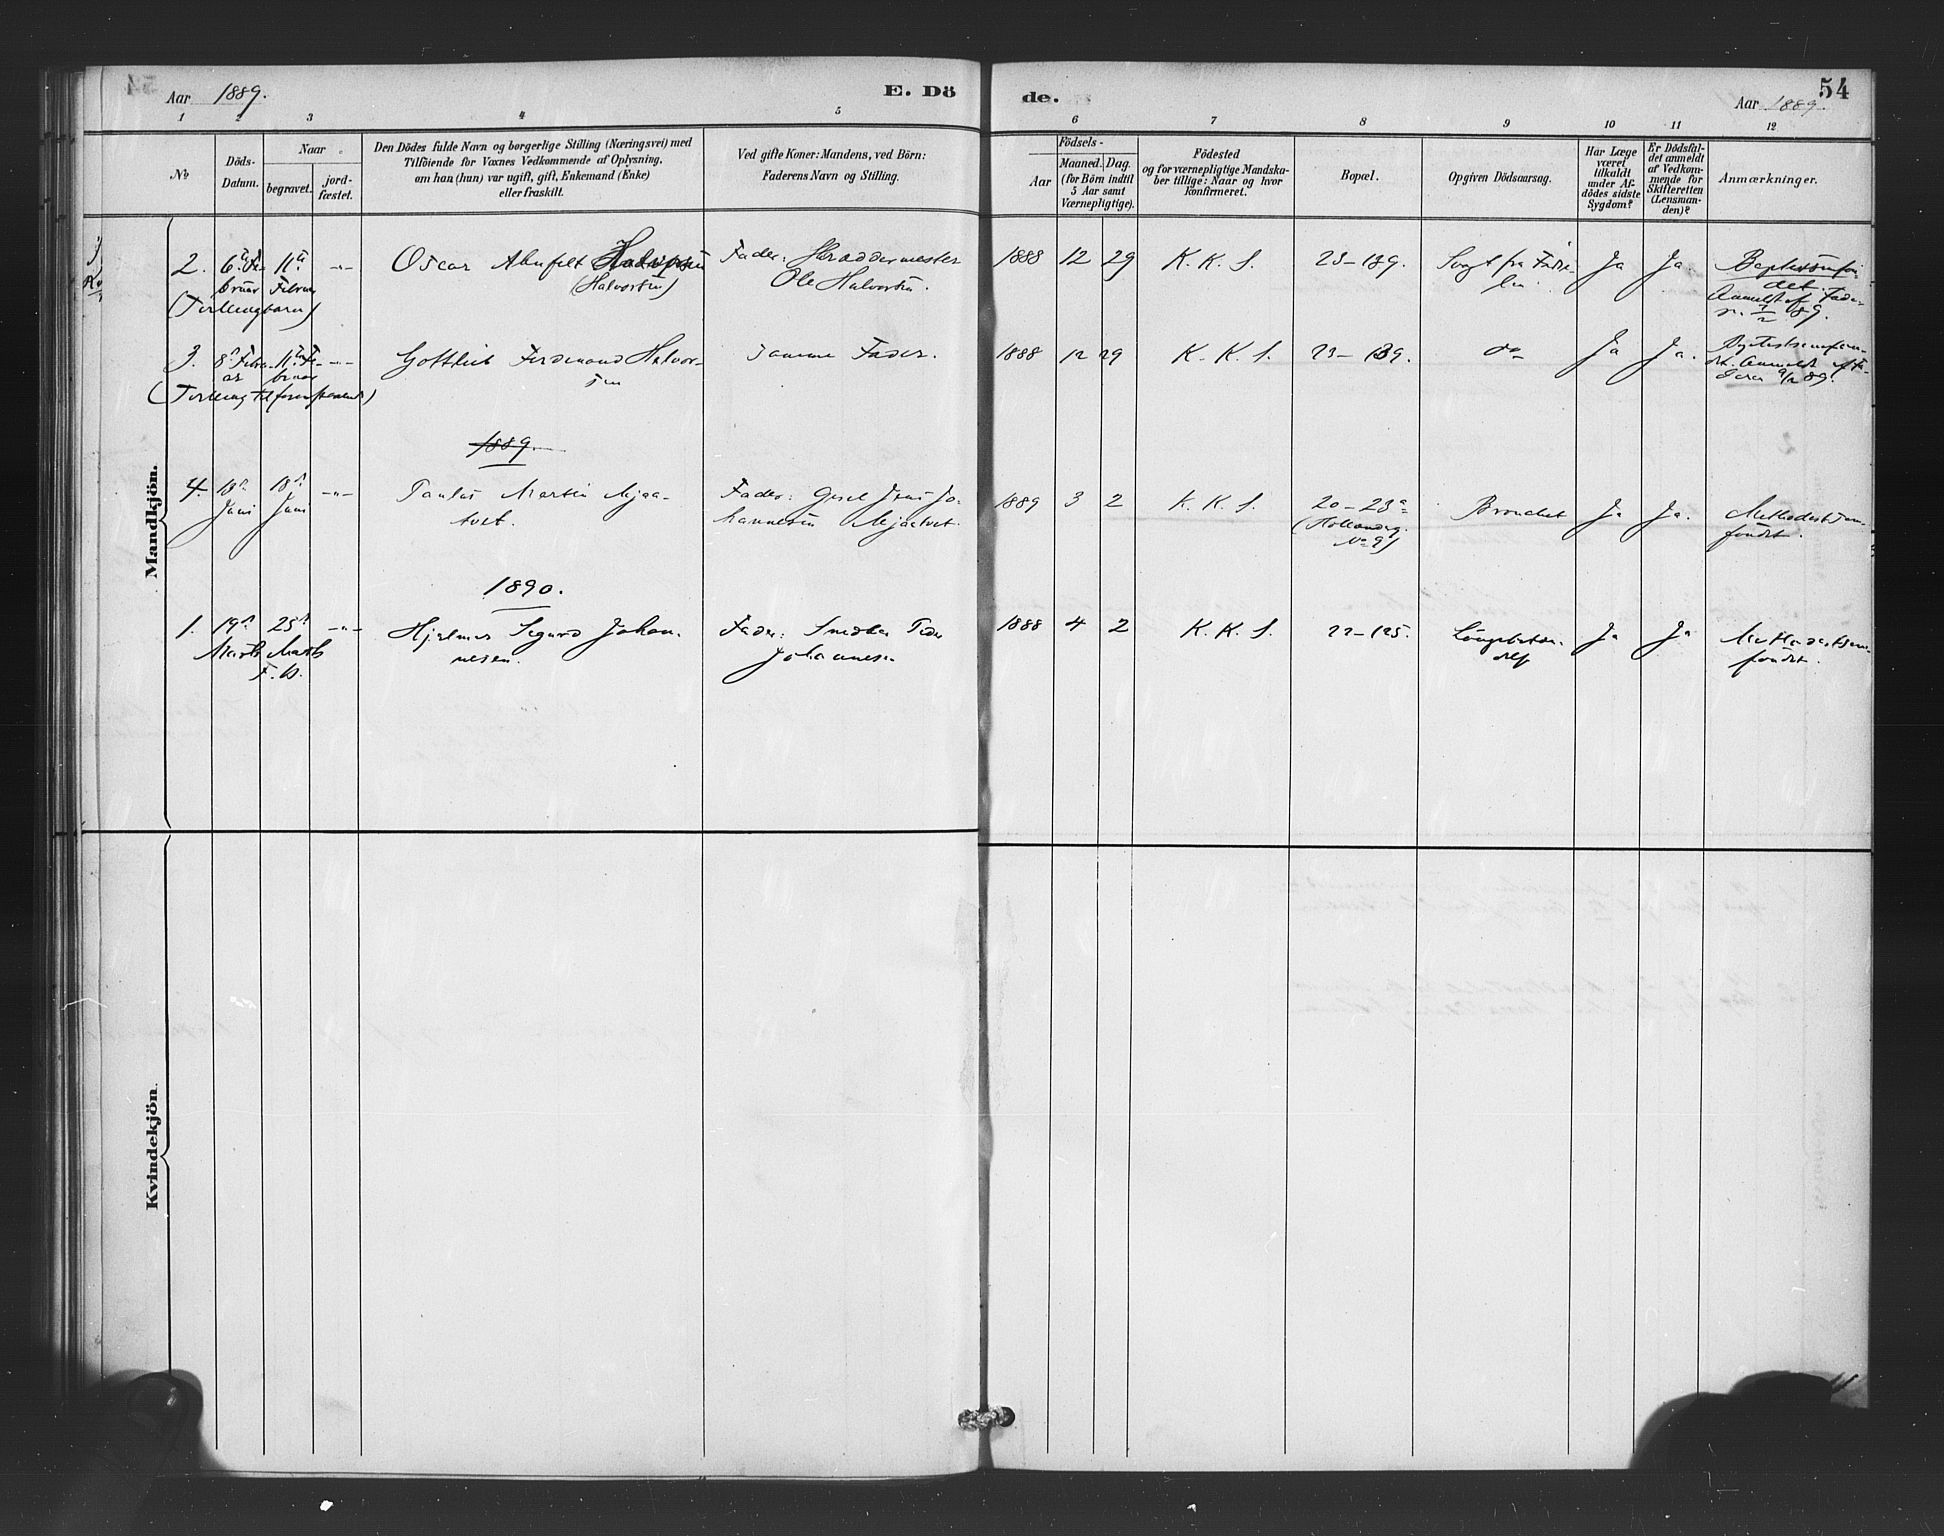 Aar 1889.
E. Dö
de.
54
Aar 1889.
1 2 3 4 5 6 7 8 9 10 11 12
No
Döds-
Datum.
Naar
begravet.
jord-
fæstet.
Den Dödes fulde Navn og borgerlige Stilling (Næringsvei) med
Tilföiende for Voxnes Vedkommende af Oplysning,
om han (hun) var ugift, gift, Enkemand (Enke)
eller fraskilt.
Ved gifte Koner: Mandens, ved Börn:
Faderens Navn og Stilling.
Födsels-
Aar
Maaned. Dag.
(for Börn indtil
5 Aar samt
Værnepligtige).
Födested
og for værnepligtige Mandska-
ber tillige: Naar og hvor
konfirmeret.
Bopæl.
Opgiven Dödsaarsag.
Har Læge
været
tilkaldt
under Af-
dödes sidste
Sygdom?
Er Dödsfal-
det anmeldt
af Vedkom-
mende for
Skifteretten
(Lensman-
den)?
Anmærkninger.
Mandkjön.
2.
6te Fe-
bruar
11te
Februar
-"-
(Tvillingbarn)
Oscar Ahnfelt
(Halvorsen)
Fader: Skræddermester
Ole Halvorsen.
1888 12 29
K. K. S.
23-189.
Svagt fra Födse-
len.
Ja
Ja.
Baptistsamfun-
det.
Anmeldt af Fade-
ren 7/2 89.
3.
8de Febru-
ar
11te Fe-
bruar
-"-
(Tvilling til forenstaaende)
Gottlieb Ferdinand Halvor-
sen
Samme Fader.
1888 12 29
K. K. S.
23-189.
do
Ja
Ja.
Baptistsamfun-
det. Anmeldt af Fa-
deren 9/2 89.
1889.
4.
18de
Juni
-"-
Martin Mjaa-
tvet.
Fader: Jens Jo-
hannesen Mjaatvet.
1889 3 2
K. K. S.
20-23a
(Hollenderg.
No 9)
Bronchit
Ja
Ja.
Methodistsam-
fundet.
1890.
1.
19de
Marts
25de
Marts
F. b.
-"-
Hjalmar Sigurd Johan-
nesen.
Fader: Snedker Peder
Johannesen
1888 4 2
K. K. S.
22-125.
Ja
Ja
Methodistsam-
fundet.
Kvindekjön.